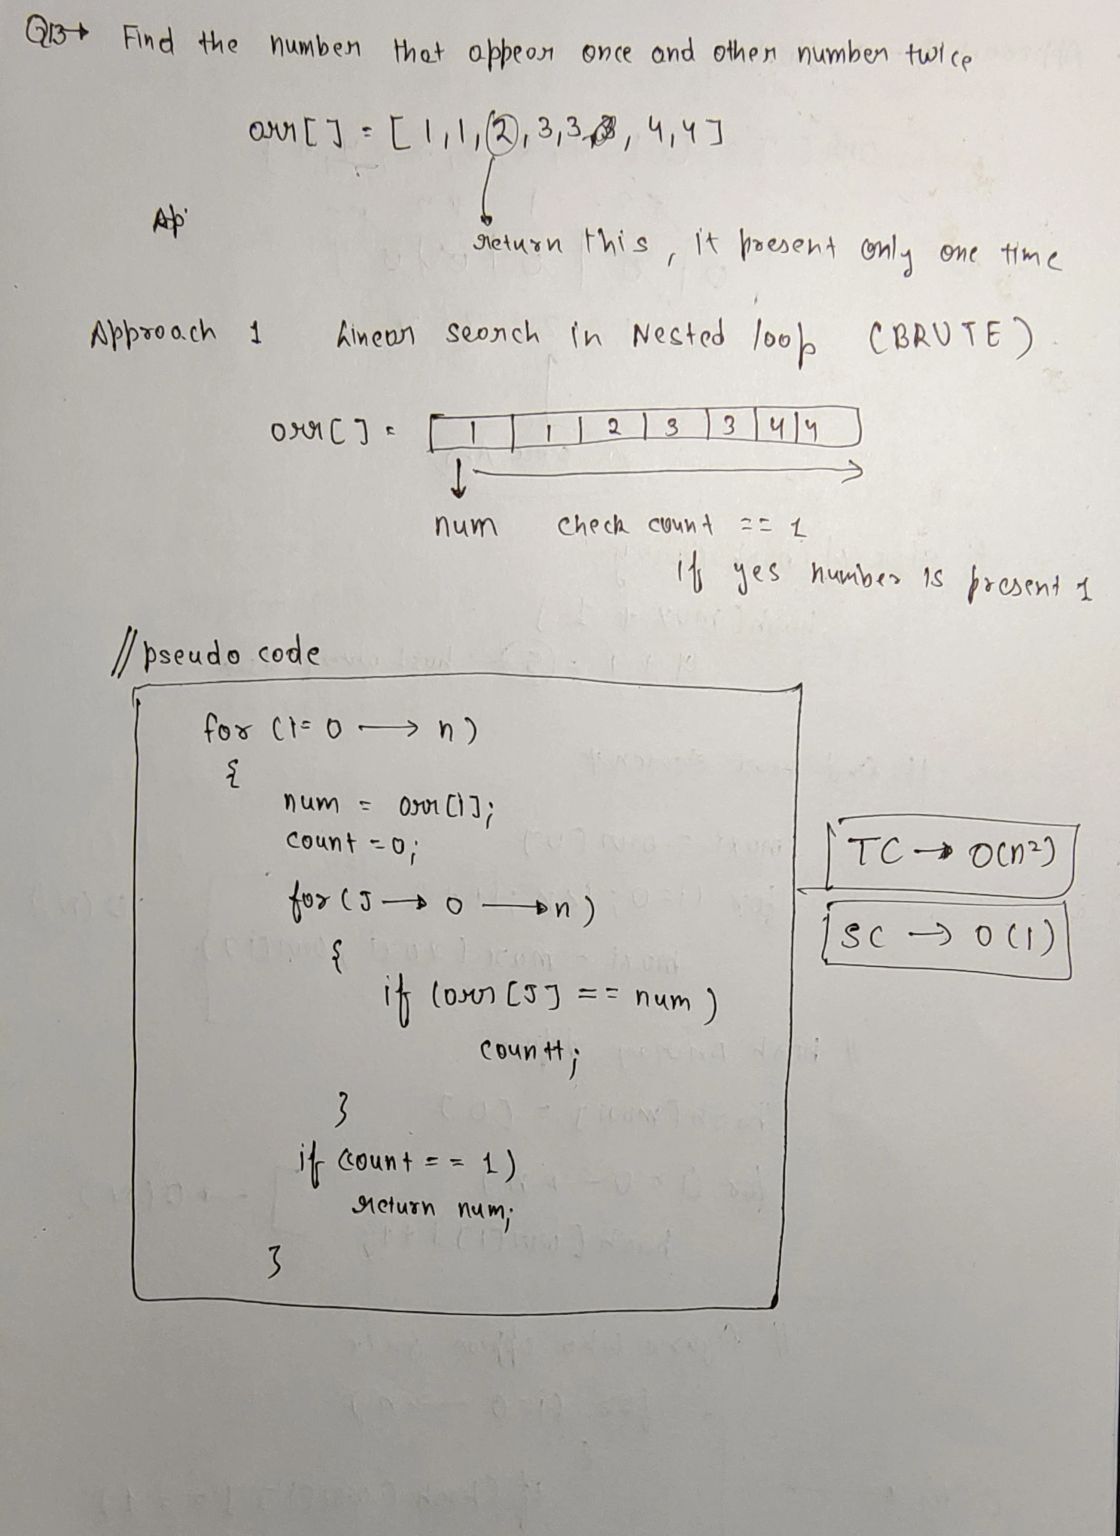 Q13→ Find the number that appear once and other number twice
arr[ ] = [ 1, 1, 2, 3, 3, 4, 4 ]
Ap
return this, it present only one time
Approach 1 Linear search in Nested loop (BRUTE)
arr[ ] = 1 1 2 3 3 4 4
num check count == 1
if yes number is present 1
// pseudo code
for (i=0 → n)
{
num = arr[i];
count = 0;
for (J → 0 → n)
{
if (arr[J] == num)
count++;
}
if count == 1)
return num;
}
TC → O(n²)
SC → O(1)